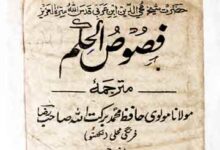 حضرت شیخ محی الدین ابن عربی قدس اللہ سرہ العزیز
فصوص الحکم
مترجمہ
مولانا مولوی حافظ محمد برکت اللہ صاحب رضا
فرنگی محلی (لکھنوی)